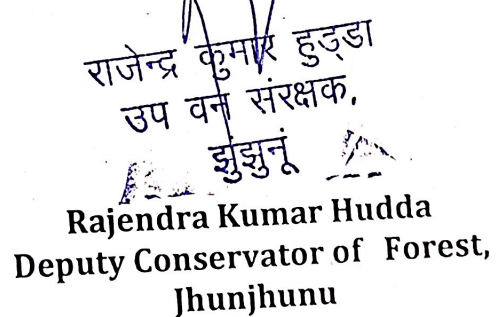 राजेन्द्र कुमार हुड्डा
उप वन संरक्षक,
झुंझुनूं
Rajendra Kumar Hudda
Deputy Conservator of Forest,
Jhunjhunu